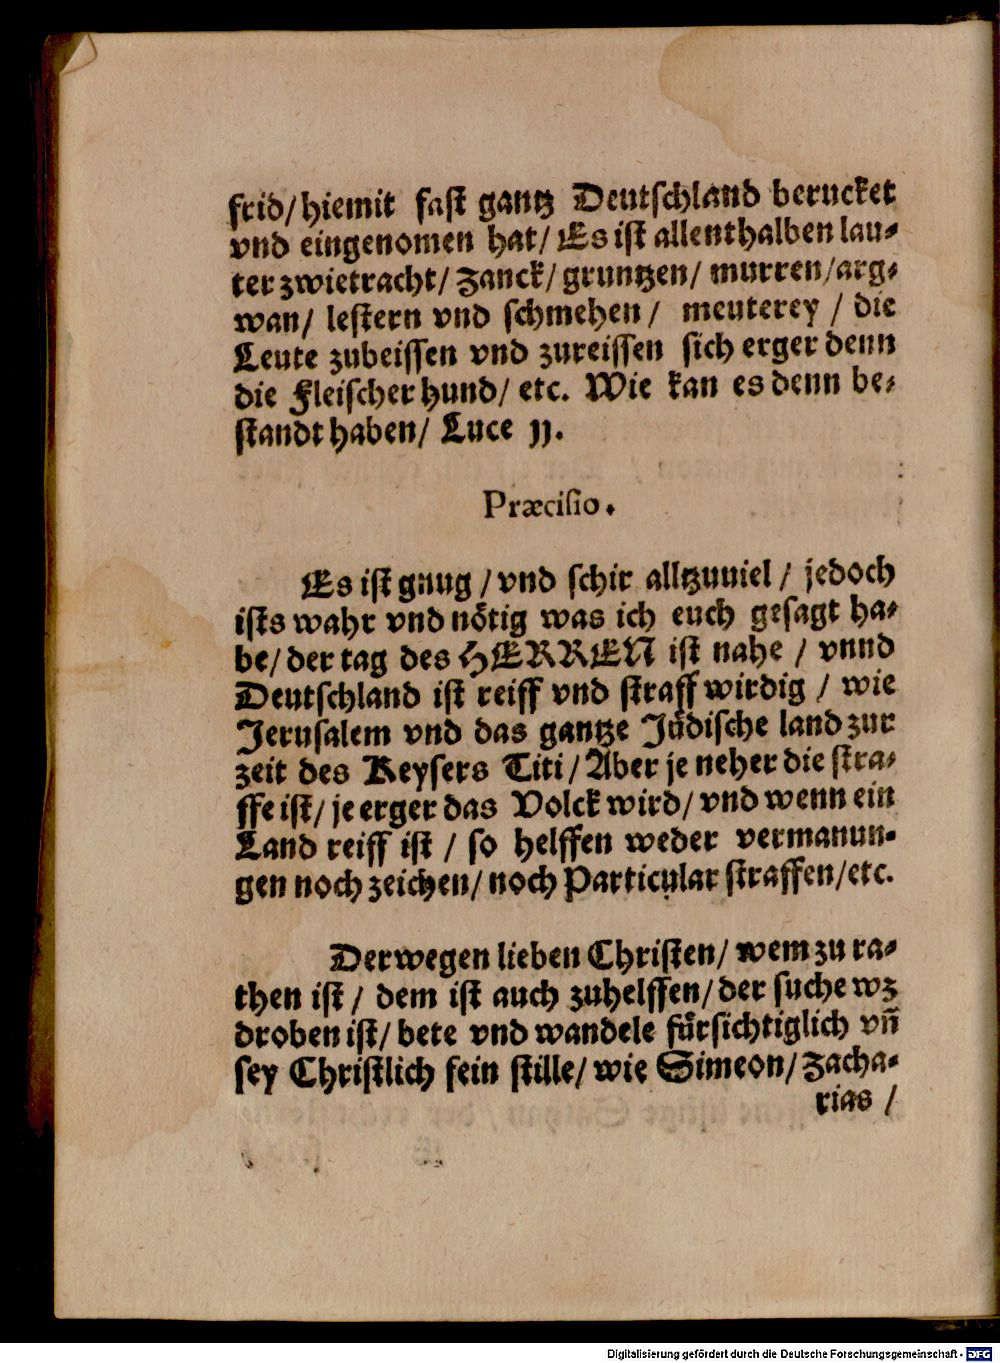 frid/hiemit faſt gantz Deutſchland berucket
vnd eingenomen hat/ Es iſt allenthalben lau⸗
ter zwietracht/ Zanck/ gruntzen/ murren/arg⸗
wan/ leſtern vnd ſchmehen / meuterey / die
Leute zubeiſſen vnd zureiſſen ſich erger denn
die Fleiſcher hund/ etc. Wie kan es denn be⸗
ſtandt haben/ Luce 11.
Præciſio.
Es iſt gnug / vnd ſchir alltzuuiel / jedoch
iſts wahr vnd nötig was ich euch geſagt ha⸗
be/ der tag des HERREN iſt nahe / vnnd
Deutſchland iſt reiff vnd ſtraff wirdig / wie
Jeruſalem vnd das gantze Jüdiſche land zur
zeit des Keyſers Titi/ Aber je neher die ſtra⸗
ffe iſt/ je erger das Volck wird/ vnd wenn ein
Land reiff iſt / ſo helffen weder vermanun⸗
gen noch zeichen/ noch Particular ſtraffen/etc.
Derwegen lieben Chriſten/ wem zu ra⸗
then iſt / dem iſt auch zuhelffen/ der ſuche wz
droben iſt/ bete vnd wandele fürſichtiglich vñ
ſey Chriſtlich fein ſtille/ wie Simeon/ Zacha⸗
rias /
Digitalisierung gefördert durch die Deutsche Forschungsgemeinschaft - DFG